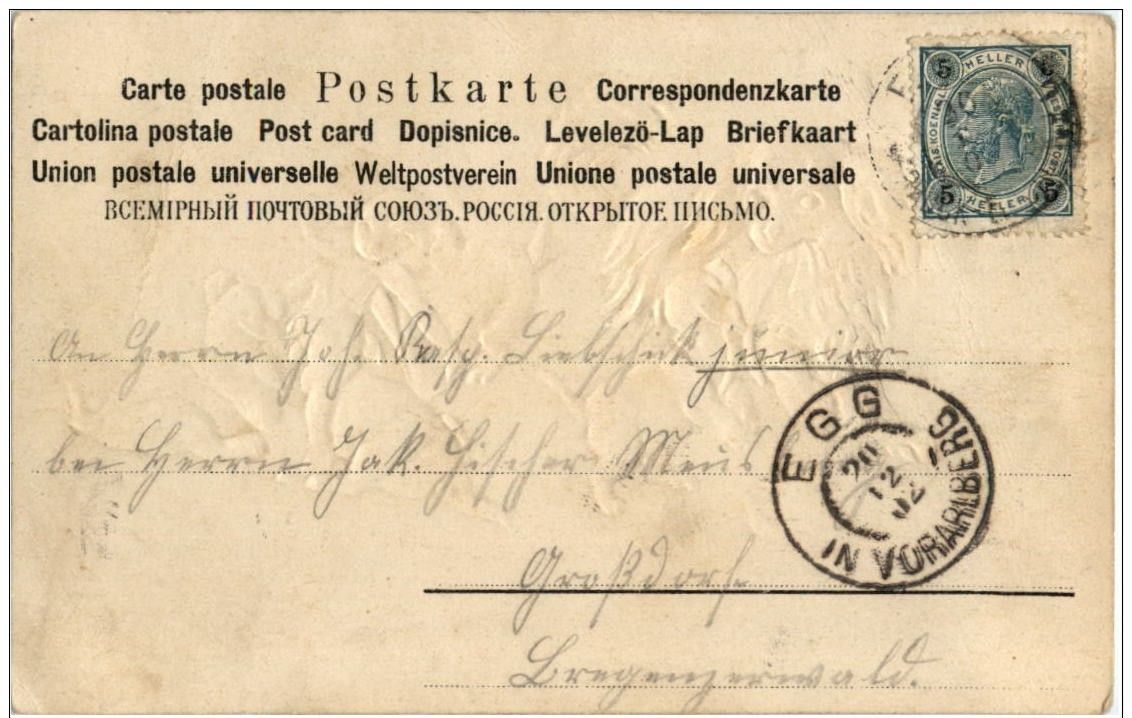 Carte postale Postkarte Correspondenzkarte
Cartolina postale Post card Dopisnice. Levelezö-Lap Briefkaart
Union postale universelle Weltpostverein Unione postale universale
ВСЕМІРНЫЙ ПОЧТОВЫЙ СОЮЗЪ. РОССІЯ. ОТКРЫТОЕ ПИСЬМО.
5 HELLER 5
5 HELLER 5
An Herrn Joh. Kasp. junior
bei Herrn Jak.
EGG
20 12 02
IN VORARLBERG
Großdorf
Bregenzerwald.